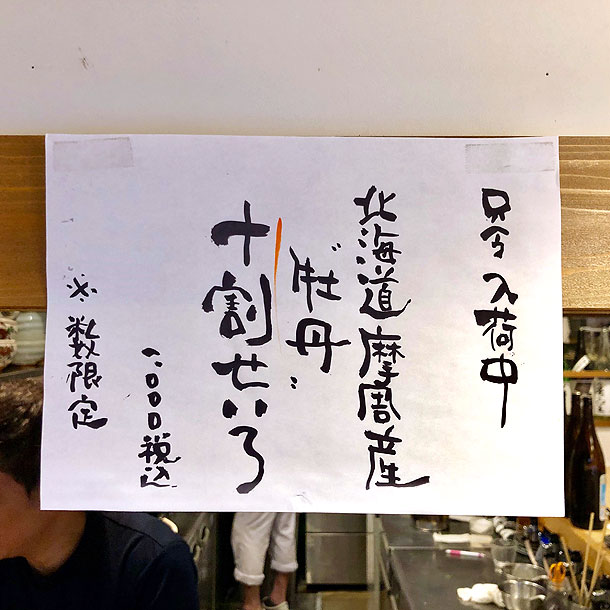 只今入荷中
北海道摩周産
"牡丹"
十割せいろ
一、〇〇〇税込
※数限定